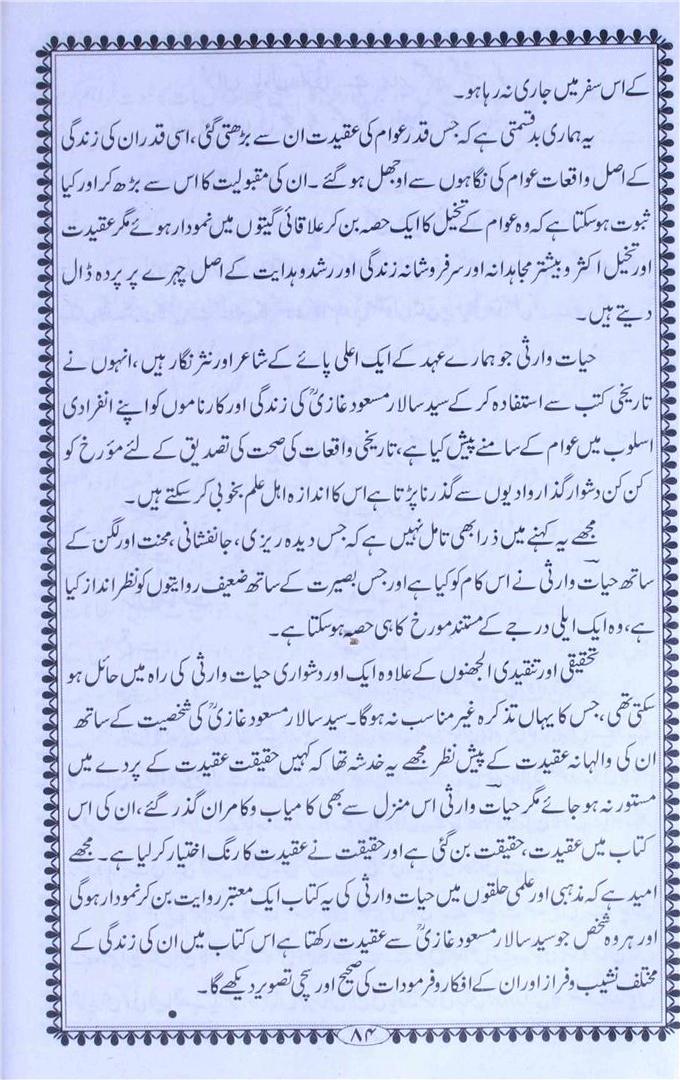 کے اس سفر میں جاری نہ رہا ہو۔
یہ ہماری بدقسمتی ہے کہ جس قدر عوام کی عقیدت ان سے بڑھتی گئی، اسی قدر ان کی زندگی
کے اصل واقعات عوام کی نگاہوں سے اوجھل ہو گئے۔ ان کی مقبولیت کا اس سے بڑھ کر اور کیا
ثبوت ہو سکتا ہے کہ وہ عوام کے تخیل کا ایک حصہ بن کر علاقائی گیتوں میں نمودار ہوئے مگر عقیدت
اور تخیل اکثر و بیشتر مجاہدانہ اور سرفروشانہ زندگی اور رشد و ہدایت کے اصل چہرے پر پردہ ڈال
دیتے ہیں۔
حیات وارثی جو ہمارے عہد کے ایک اعلی پائے کے شاعر اور نثر نگار ہیں، انہوں نے
تاریخی کتب سے استفادہ کر کے سید سالار مسعود غازیؒ کی زندگی اور کارناموں کو اپنے انفرادی
اسلوب میں عوام کے سامنے پیش کیا ہے، تاریخی واقعات کی صحت کی تصدیق کے لئے مؤرخ کو
کن کن دشوار گذار وادیوں سے گذرنا پڑتا ہے اس کا اندازہ اہل علم بخوبی کر سکتے ہیں۔
مجھے یہ کہنے میں ذرا بھی تامل نہیں ہے کہ جس دیدہ ریزی، جانفشانی، محنت اور لگن کے
ساتھ حیاتؔ وارثی نے اس کام کو کیا ہے اور جس بصیرت کے ساتھ ضعیف روایتوں کو نظر انداز کیا
ہے، وہ ایک ایلی درجے کے مستند مورخ کا ہی حصہ ہو سکتا ہے۔
تحقیقی اور تنقیدی الجھنوں کے علاوہ ایک اور دشواری حیات وارثی کی راہ میں حائل ہو
سکتی تھی، جس کا یہاں تذکرہ غیر مناسب نہ ہوگا۔ سید سالار مسعود غازیؒ کی شخصیت کے ساتھ
ان کی والہانہ عقیدت کے پیش نظر مجھے یہ خدشہ تھا کہ کہیں حقیقت عقیدت کے پردے میں
مستور نہ ہو جائے مگر حیاتؔ وارثی اس منزل سے بھی کامیاب و کامران گذر گئے، ان کی اس
کتاب میں عقیدت، حقیقت بن گئی ہے اور حقیقت نے عقیدت کا رنگ اختیار کر لیا ہے۔ مجھے
امید ہے کہ مذہبی اور علمی حلقوں میں حیات وارثی کی یہ کتاب ایک معتبر روایت بن کر نمودار ہوگی
اور ہر وہ شخص جو سید سالار مسعود غازیؒ سے عقیدت رکھتا ہے اس کتاب میں ان کی زندگی کے
مختلف نشیب و فراز اور ان کے افکار و فرمودات کی صحیح اور سچی تصویر دیکھے گا۔
۸۴